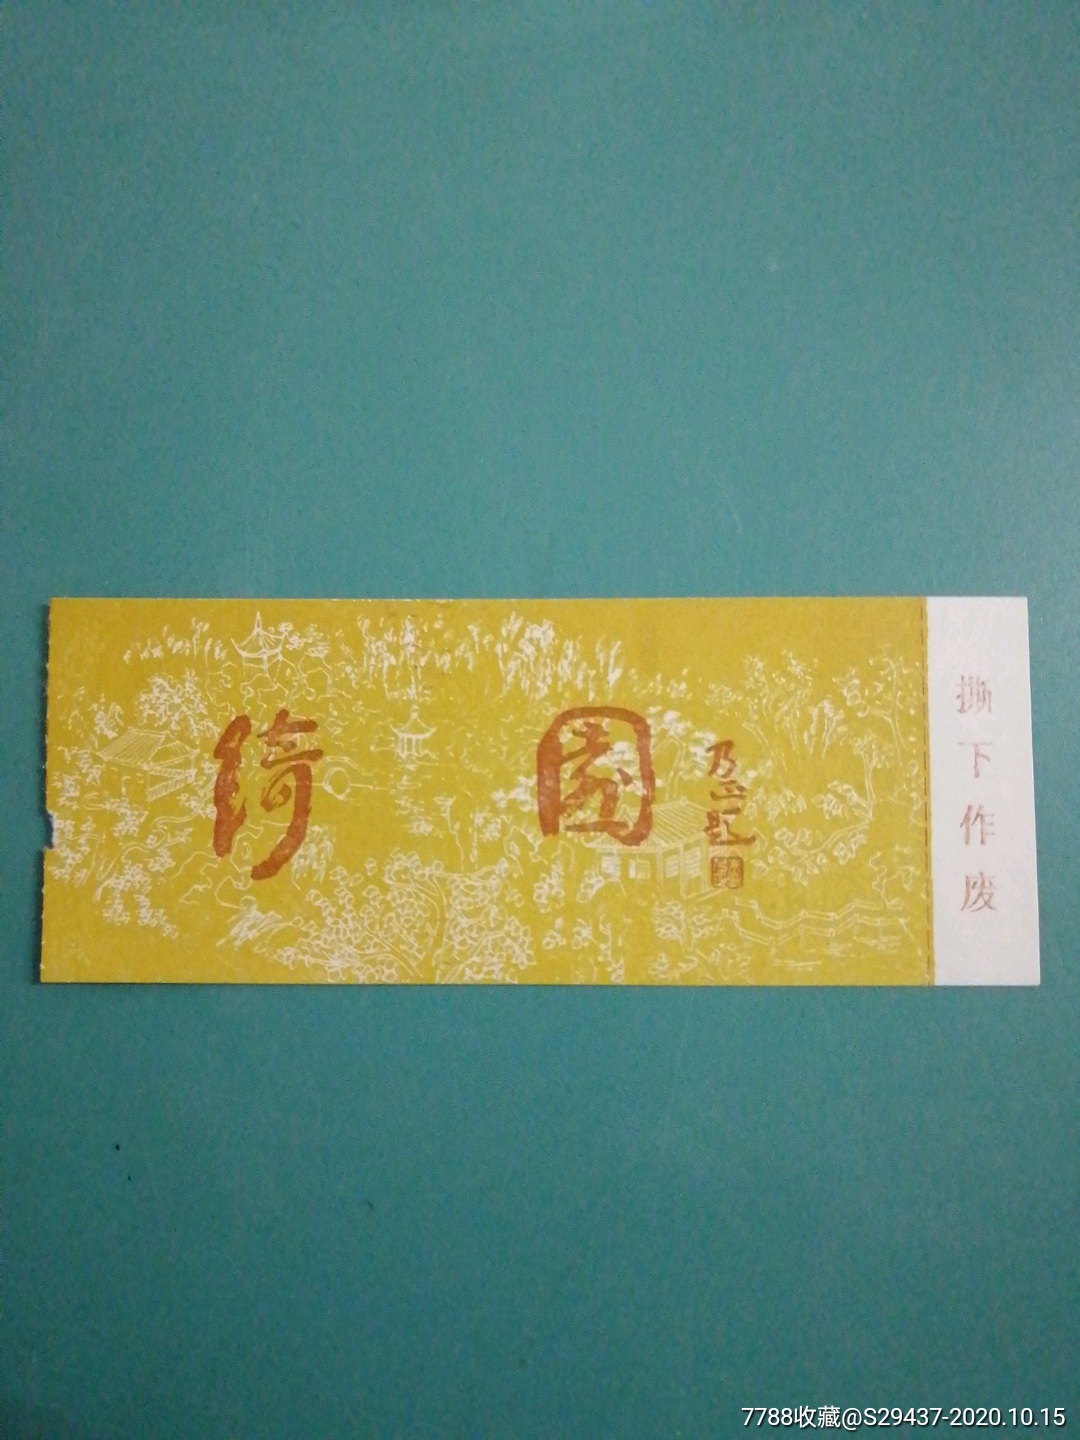 绮园
乃正题
撕下作废
7788收藏@S29437-2020.10.15